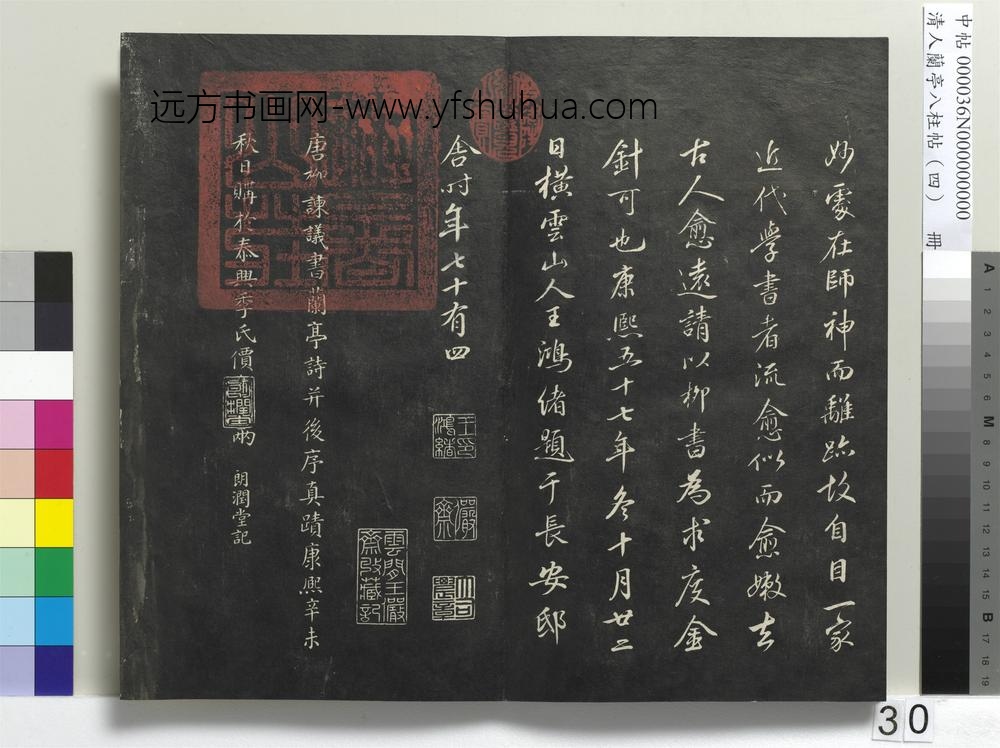 远方书画网-www.yfshuhua.com
妙處在師神而離跡故自目一家
近代學書者流愈似而愈嫩去
古人愈遠請以柳書為求度金
針可也康熙五十七年冬十月廿二
日橫雲山人王鴻緒題于長安邸
舍时年七十有四
王印鴻緒
儼齋
雲間王儼齋收藏記
唐柳諫議書蘭亭詩并後序真蹟康熙辛未
秋日購於泰興季氏價
兩
朗潤堂記
中帖000036N000000000
清人蘭亭八柱帖（四） 冊
A 1 2 3 4 5 6 M 8 9 10 11 12 13 14 15 B 17 18 19
30